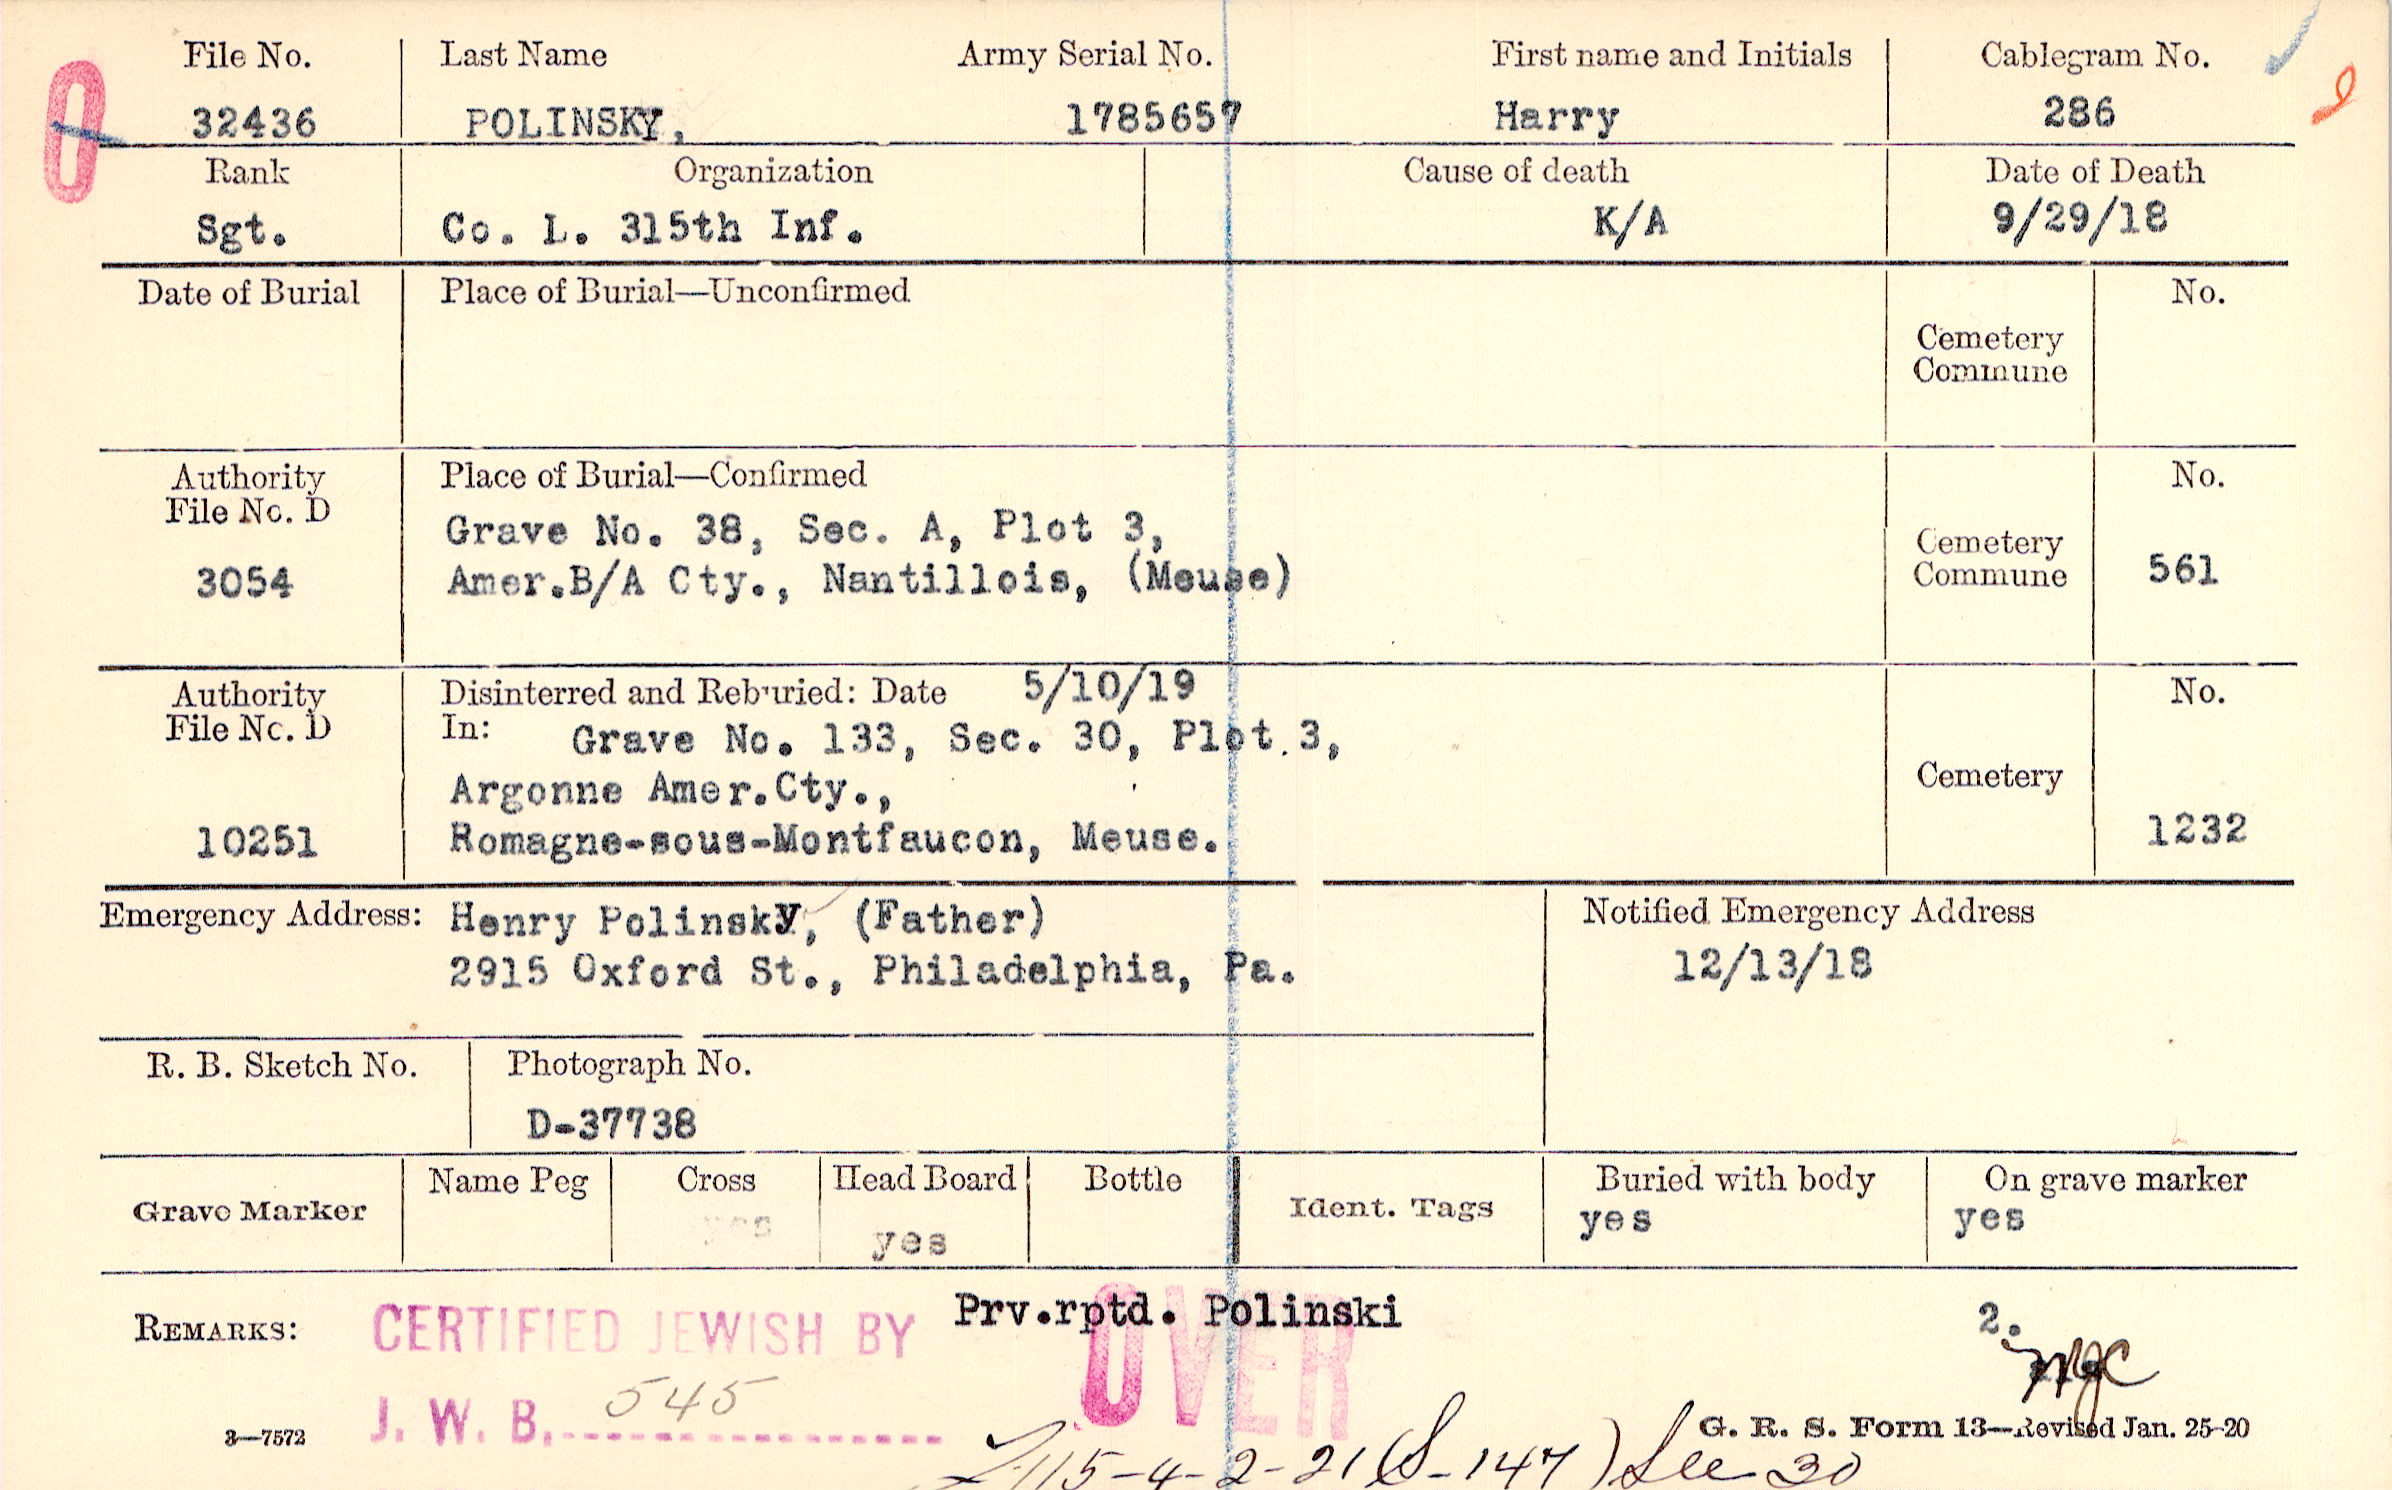 File No. Last Name Army Serial No. First name and Initials Cablegram No.
32436 POLINSKY, 1785657 Harry 286
Rank Organization Cause of death Date of Death
Sgt. Co. L. 315th Inf. K/A 9/29/18
Date of Burial Place of Burial—Unconfirmed No.
Cemetery
Commune
Authority Place of Burial—Confirmed No.
File No. D
Grave No. 38, Sec. A, Plot 3,
Cemetery
3054 Amer.B/A Cty., Nantillois, (Meuse) Commune 561
Authority Disinterred and Reburied: Date 5/10/19 No.
File No. D In: Grave No. 133, Sec. 30, Plot 3,
Argonne Amer.Cty., Cemetery
10251 Romagne-sous-Montfaucon, Meuse. 1232
Emergency Address: Henry Polinsky, (Father) Notified Emergency Address
2915 Oxford St., Philadelphia, Pa. 12/13/18
R. B. Sketch No. Photograph No.
D-37738
Grave Marker Name Peg Cross Head Board Bottle Ident. Tags Buried with body On grave marker
yes yes yes yes
REMARKS: CERTIFIED JEWISH BY Prv.rptd. Polinski 2.
OVER
J. W. B. 545
3—7572 G. R. S. Form 13—Revised Jan. 25-20
115-4-2-21 (S-147) See 30